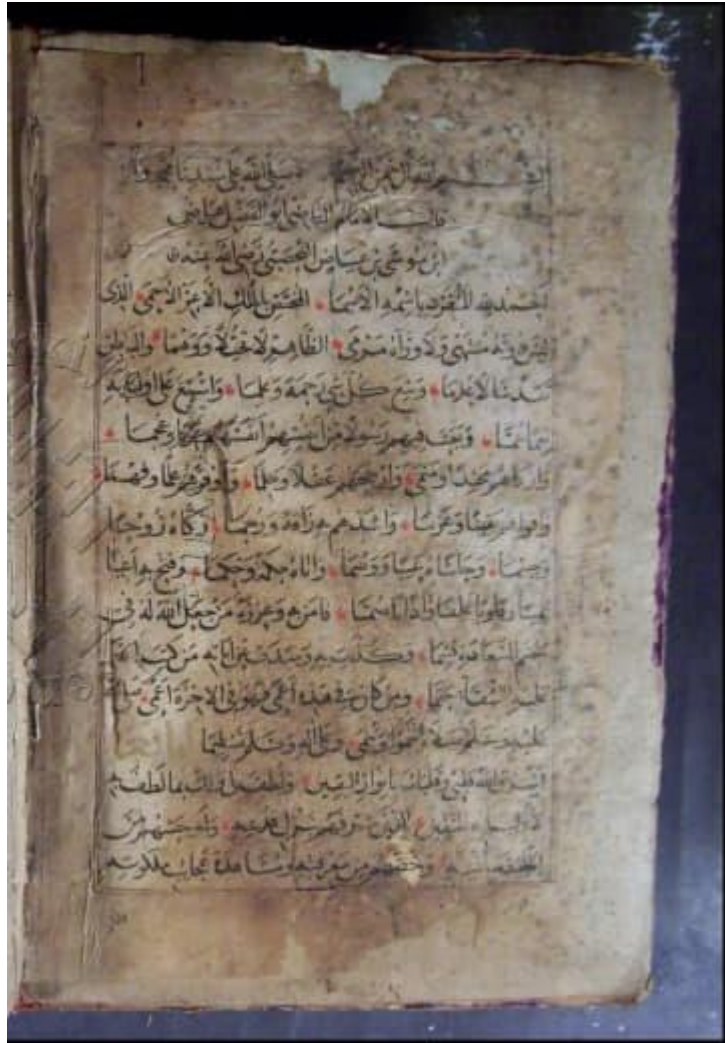 بسم الله الرحمن الرحيم صلى الله على سيدنا محمد وآله
قال الامام القاضى ابو الفضل عياض
ابن موسى بن عياض اليحصبى رضى الله عنه
الحمد لله المنفرد باسمه الاسمى المختص بالملك الاعز الاحمى الذى
ليس دونه منتهى ولا وراءه مرمى الظاهر لا تخيلا ووهما والباطن
تقدسا لا عدما وسع كل شئ رحمة وعلما واسبغ على اوليائه
نعما عما وبعث فيهم رسولا من انفسهم انفسهم وعجما
وازكاهم محتدا ومنمى وارجحهم عقلا وحلما واوفرهم علما وفهما
واقواهم يقينا وعزما واشدهم بهم رأفة ورحما وزكاه روحا
وجسما وحاشاه عيبا ووصما واتاه حكمة وحكما وفتح به اعينا
عميا وقلوبا غلفا واذانا صما فامن به وعزره من جعل الله له فى
مغنم السعادة قسما وكذب به وصدف عن اياته من كتب الله
عليه الشقاء حتما ومن كان فى هذه اعمى فهو فى الاخرة اعمى صلى الله
عليه وسلم صلاة تنمو وتنمى وعلى اله وسلم تسليما
الله قلبى وقلبك بانوار اليقين ولطف لى ولك بما لطف به
لاوليائه المتقين الذين شرفهم بنزل قدسه واوحشهم من
الخليقة بانسه وخصهم من معرفته ومشاهدة عجائب ملكوته